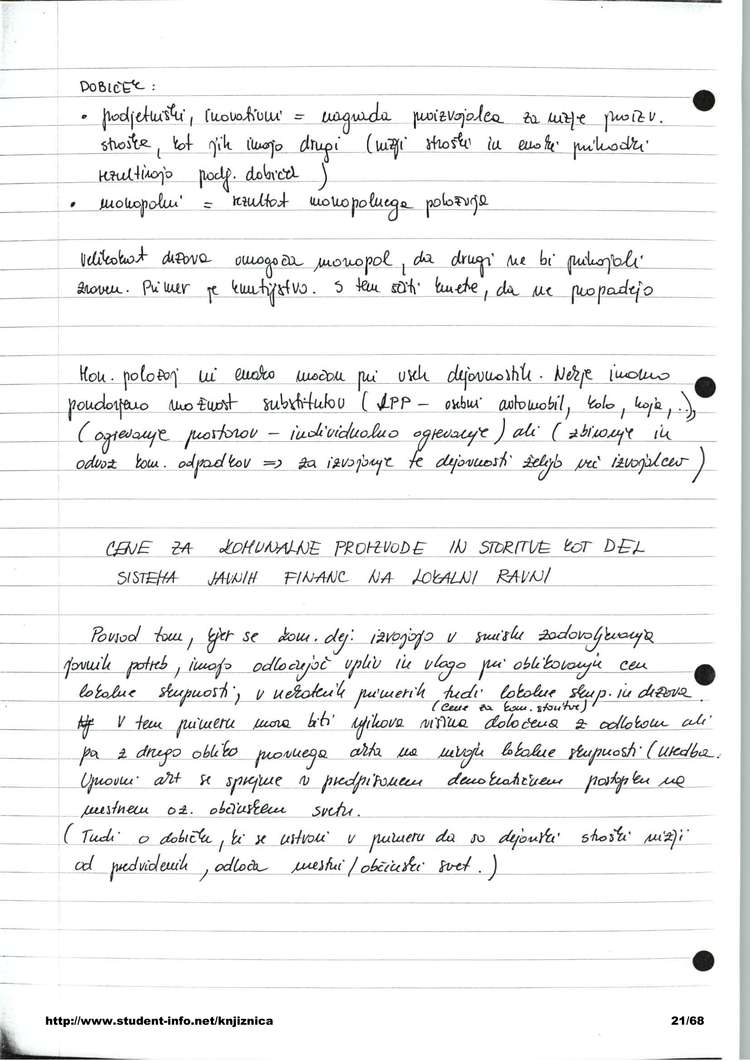 DOBIČEK :
• podjetniški, inovativni = nagrada proizvajalca za nižje proizv.
stroške, kot jih imajo drugi (nižji stroški in enaki prihodki
rezultirajo podj. dobiček)
• monopolni = rezultat monopolnega položaja
Velikokrat država omogoča monopol, da drugi ne bi prihajali
zraven. Primer je kmetijstvo. S tem ščiti kmete, da ne propadejo
Mon. položaj ni enako močan pri vseh dejavnostih. Nekje imamo
poudarjeno možnost substitutov (LPP – osebni automobil, kolo, hoja, ..),
(ogrevanje prostorov – individualno ogrevanje) ali (zbiranje in
odvoz kom. odpadkov => za izvajanje te dejavnosti želijo več izvajalcev)
CENE ZA KOMUNALNE PROIZVODE IN STORITVE KOT DEL
SISTEMA JAVNIH FINANC NA LOKALNI RAVNI
Povsod tam, kjer se kom. dej. izvajajo v smislu zadovoljevanja
javnih potreb, imajo odločujoč vpliv in vlogo pri oblikovanju cen
lokalne skupnosti, v nekaterih primerih tudi lokalne skup. in država.
(cene za kom. storitve)
V tem primeru mora biti njihova višina določena z odlokom ali
pa z drugo obliko pravnega akta na nivoju lokalne skupnosti (uredba.
Upravni akt se sprejme v predpisanem demokratičnem postopku na
mestnem oz. občinskem svetu.
(Tudi o dobičku, ki se ustvari v primeru da so dejanski stroški nižji
od predvidenih, odloča mestni/občinski svet.)
http://www.student-info.net/knjiznica
21/68